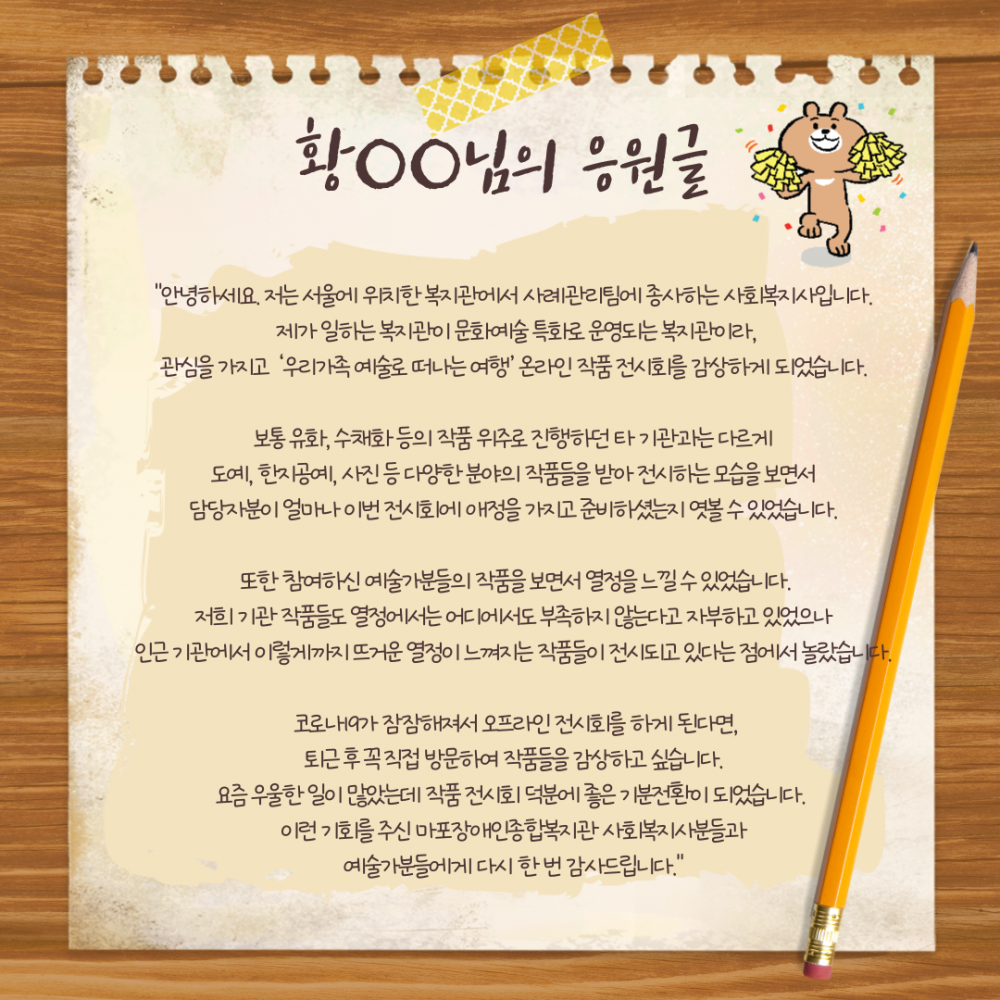 황○○님의 응원글
"안녕하세요. 저는 서울에 위치한 복지관에서 사례관리팀에 종사하는 사회복지사입니다.
제가 일하는 복지관이 문화예술 특화로 운영되는 복지관이라,
관심을 가지고 '우리가족 예술로 떠나는 여행' 온라인 작품 전시회를 감상하게 되었습니다.
보통 유화, 수채화 등의 작품 위주로 진행하던 타 기관과는 다르게
도예, 한지공예, 사진 등 다양한 분야의 작품들을 받아 전시하는 모습을 보면서
담당자분이 얼마나 이번 전시회에 애정을 가지고 준비하셨는지 엿볼 수 있었습니다.
또한 참여하신 예술가분들의 작품을 보면서 열정을 느낄 수 있었습니다.
저희 기관 작품들도 열정에서는 어디에서도 부족하지 않는다고 자부하고 있었으나
인근 기관에서 이렇게까지 뜨거운 열정이 느껴지는 작품들이 전시되고 있다는 점에서 놀랐습니다.
코로나19가 잠잠해져서 오프라인 전시회를 하게 된다면,
퇴근 후 꼭 직접 방문하여 작품들을 감상하고 싶습니다.
요즘 우울한 일이 많았는데 작품 전시회 덕분에 좋은 기분전환이 되었습니다.
이런 기회를 주신 마포장애인종합복지관 사회복지사분들과
예술가분들에게 다시 한 번 감사드립니다."